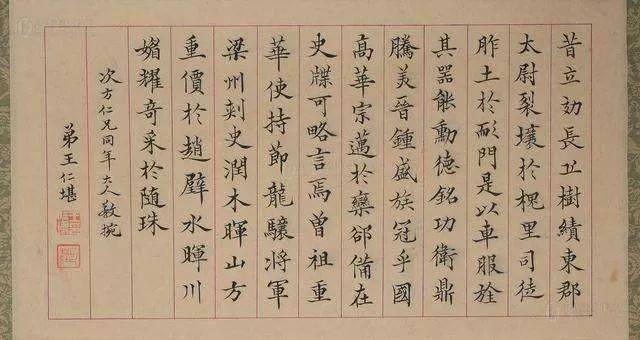 昔立効長丘樹績東郡
太尉裂壤於槐里司徒
胙土於耏門是以車服旌
其器能勳德銘功衛鼎
騰美晉鍾盛族冠乎國
高華宗邁於欒郤備在
史牒可略言焉曾祖重
華使持節龍驤將軍
梁州刺史潤木暉山方
重價於趙璧水暉川
媚耀奇采於随珠
次方仁兄同年大人教
弟王仁堪